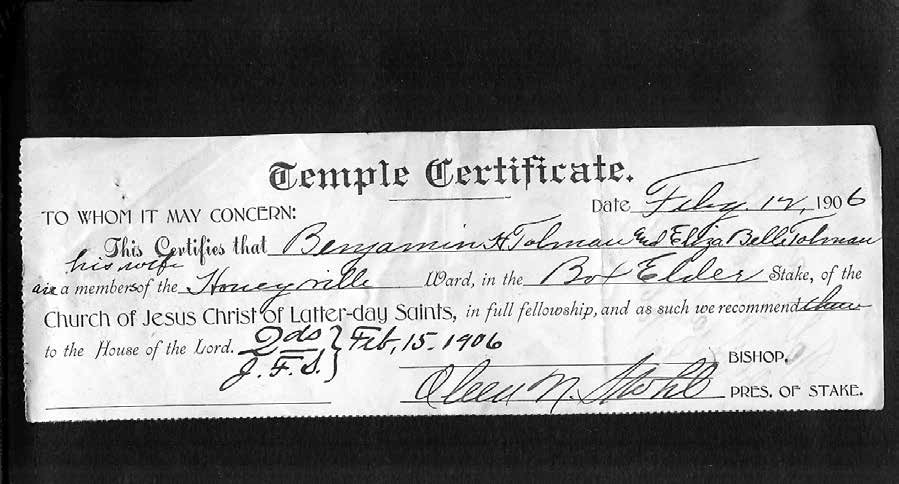 Temple Certificate.
TO WHOM IT MAY CONCERN:
Date Feby. 12, 1906
This Certifies that Benjamin H Tolman and Eliza Bell Tolman
his wife
are a members of the Honeyville Ward, in the Box Elder Stake, of the
Church of Jesus Christ of Latter-day Saints, in full fellowship, and as such we recommend them
to the House of the Lord. 2ds } Feb, 15. 1906
J. F. S.
BISHOP.
Oleen N. Stohl PRES. OF STAKE.